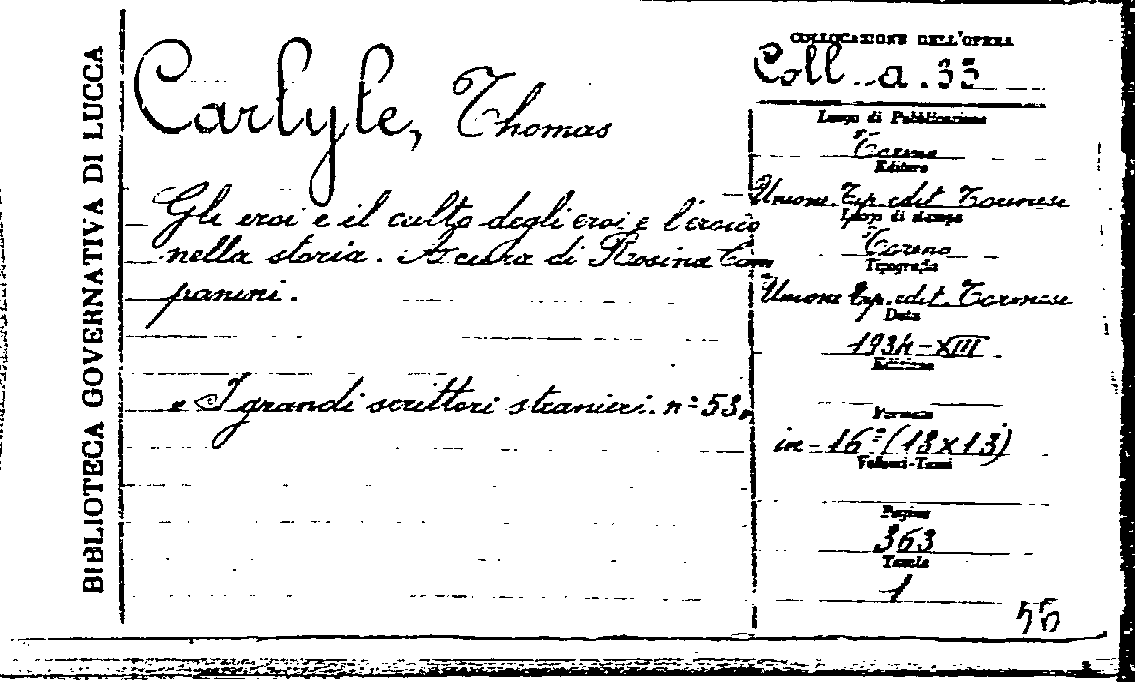 BIBLIOTECA GOVERNATIVA DI LUCCA
Carlyle, Thomas
Gli eroi e il culto degli eroi e l'eroico
nella storia. A cura di Rosina Cam
panini.
« I grandi scrittori stranieri. n° 53»
COLLOCAZIONE DELL'OPERA
Coll. a. 33
Luogo di Pubblicazione
Torino
Editore
Unione Tip. edit. Torinese
Luogo di stampa
Torino
Tipografia
Unione Tip. edit. Torinese
Data
1934-XIII
Edizione
Formato
in-16° (18x13)
Volumi-Tomi
Pagine
363
Tavole
1